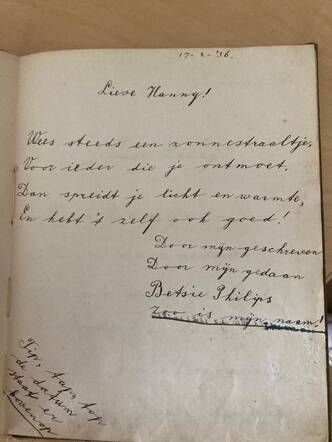 17-2-'36.
Lieve Hanny!
Wees steeds een zonnestraaltje,
Voor ieder die je ontmoet.
Dan spreidt je licht en warmte,
En hebt 't zelf ook goed!
Door mijn geschreven
Door mijn gedaan
Betsie Philips
Zoo is mijn naam!
Tip, tap, top
de datum
staat er
bovenop